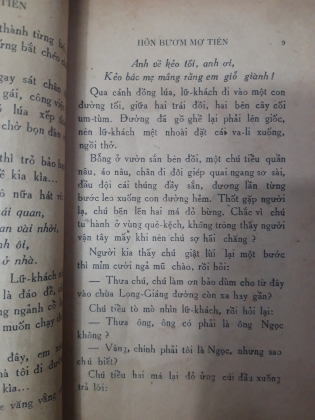 TIÊN
thành từng b
ứng bắt chéo
gay sát chân
gái, công việ
lúa xếp
chờ bọn đàn
thì trỏ bảo
kìa kìa...
ô nữa hát v
ái quan,
an vài nhời,
nh ơi,
ở nhà.
Lữ-khách
là đáo để, c
c văng cổ l
muốn chạy đ
đây, em x
nhà tôi đi đ
kìa...
ngành c
HỒN BƯỚM MƠ TIÊN 9
Anh về kẻo tối, anh ơi,
Kẻo bác mẹ mắng rằng em giỗ giành !
Qua cánh đồng lúa, lữ-khách đi vào một con
đường tối, giữa hai trái đồi, hai bên cây cối
um-tùm. Đường đã gồ ghề lại phải lên giốc,
nên lữ-khách mệt nhoài đặt cái va-li xuống,
ngồi thở.
Bỗng ở vườn sắn bên đồi, một chú tiểu quần
nâu, áo nâu, chân đi đôi giép quai ngang sơ sài,
đầu đội cái thúng đầy sắn, đương lần từng
bước leo xuống con đường hẻm. Thốt gặp người
lạ, chú bẽn lẽn hai má đỏ bừng. Chắc vì chú
tu hành ở vùng quê-kệch, không trông thấy người
vận tây mấy khi nên chú sợ hãi chăng ?
Người kia thấy chú giật lùi lại một bước
thì mỉm cười ngả mũ chào, rồi hỏi:
— Thưa chú, chú làm ơn bảo dùm cho từ đây
vào chùa Long-Giáng đường còn xa hay gần?
Chú tiểu tò mò nhìn lữ-khách, rồi hỏi lại:
— Thưa ông, ông có phải là ông Ngọc
không ?
— Vâng, chính phải tôi là Ngọc, nhưng sao
chú biết?
Chú tiểu hai má lại đỏ ửng cúi đầu xuống
trả lời: